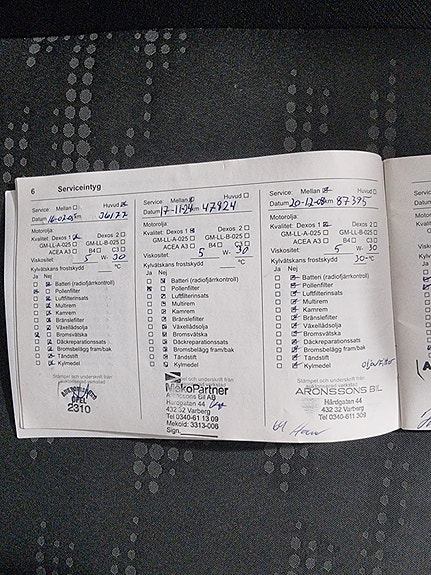 6 Serviceintyg
Service: Mellan Huvud
Datum 16-02-08 km 36177
Motorolja:
Kvalitet: Dexos 1 Dexos 2
GM-LL-A-025 GM-LL-B-025
ACEA A3 B4 C3
Viskositet: 5 W- 30
Kylvätskans frostskydd °C
Ja Nej
Batteri (radiofjärrkontroll)
Pollenfilter
Luftfilterinsats
Multirem
Kamrem
Bränslefilter
Växellådsolja
Bromsvätska
Däckreparationssats
Bromsbelägg fram/bak
Tändstift
Kylmedel
Stämpel och underskrift från
OPEL
2310
Service: Mellan Huvud
Datum 17-11-24 km 47924
Motorolja:
Kvalitet: Dexos 1 Dexos 2
GM-LL-A-025 GM-LL-B-025
ACEA A3 B4 C3
Viskositet: 5 W- 30
Kylvätskans frostskydd °C
Ja Nej
Batteri (radiofjärrkontroll)
Pollenfilter
Luftfilterinsats
Multirem
Kamrem
Bränslefilter
Växellådsolja
Bromsvätska
Däckreparationssats
Bromsbelägg fram/bak
Tändstift
Kylmedel
Stämpel och underskrift från
MekoPartner
Aronssons Bil AB
Hårdgatan 44
432 32 Varberg
Tel 0340-61 13 09
Mekoid: 3313-006
Sign.
Service: Mellan Huvud
Datum 20-12-08 km 87395
Motorolja:
Kvalitet: Dexos 1 Dexos 2
GM-LL-A-025 GM-LL-B-025
ACEA A3 B4 C3
Viskositet: 5 W- 30
Kylvätskans frostskydd 30- °C
Ja Nej
Batteri (radiofjärrkontroll)
Pollenfilter
Luftfilterinsats
Multirem
Kamrem
Bränslefilter
Växellådsolja
Bromsvätska
Däckreparationssats
Bromsbelägg fram/bak
Tändstift
Kylmedel
Stämpel och underskrift från
ARONSSONS BIL
Hårdgatan 44
432 32 Varberg
Tel 0340-611 309